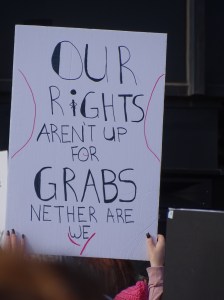 OUR
RIGHTS
AREN'T UP
FOR
GRABS
NETHER ARE
WE